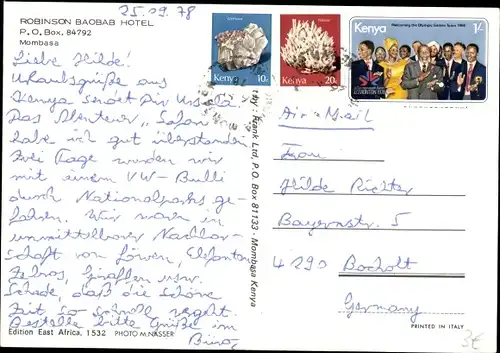 25.09.78
ROBINSON BAOBAB HOTEL
P.O. Box. 84792
Mombasa
Liebe Hilde!
Urlaubsgrüße aus
Kenya sendet Dir
Das Abenteuer "Safari"
habe ich gut überstanden
Zwei Tage wurden wir
mit einem VW-Bulli
durch Nationalparks ge-
fahren. Wir waren in
unmittelbarer Nachbar-
schaft von Löwen, Elefanten
Zebras, Giraffen usw.
Schade, daß die schöne
Zeit so schnell vergeht.
Bestelle bitte Grüße im
Büro
Edition East Africa, 1532 PHOTO M.NASSER
by: Frank Ltd, P.O. Box 81133 - Mombasa Kenya
Kenya
10c
Kenya
20c
Kenya
1/-
EDMONTON 1978
Air-Mail
Frau
Hilde Richter
Bayernstr. 5
4290 Bocholt
Germany
PRINTED IN ITALY
3€